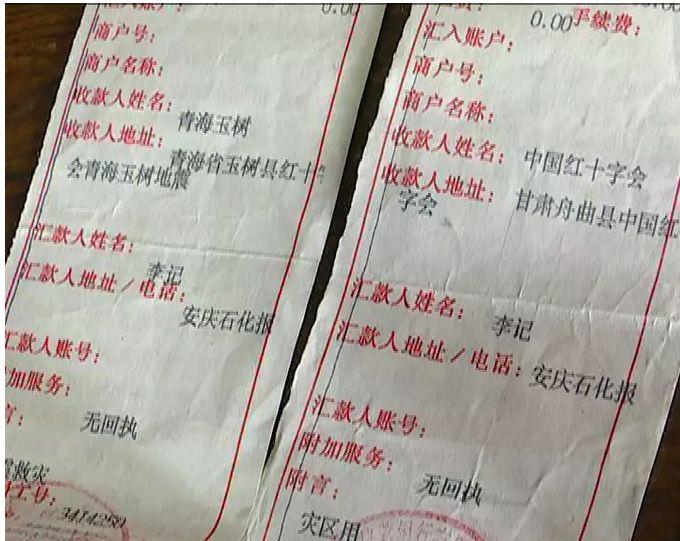 汇入账户：
0.00
商户号：
商户名称：
收款人姓名：
青海玉树
收款人地址：
青海省玉树县红十
会青海玉树地震
汇款人姓名：
李记
汇款人地址／电话：
安庆石化报
汇款人账号：
附加服务：
言：
无回执
救灾
工号：
3414259
0.00
手续费：
汇入账户：
商户号：
商户名称：
收款人姓名：
中国红十字会
收款人地址：
甘肃舟曲县中国红
字会
汇款人姓名：
李记
汇款人地址／电话：
安庆石化报
汇款人账号：
附加服务：
附言：
无回执
灾区用